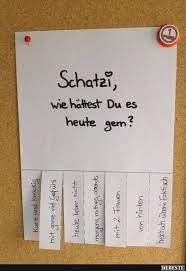 Schatzi,
wie hättest Du es
heute gern?
Kurz und knackig
mit ganz viel Gefühl
heute lieber nicht
morgens, mittags, abends
mit 2 Frauen
von hinten
DEBESTE